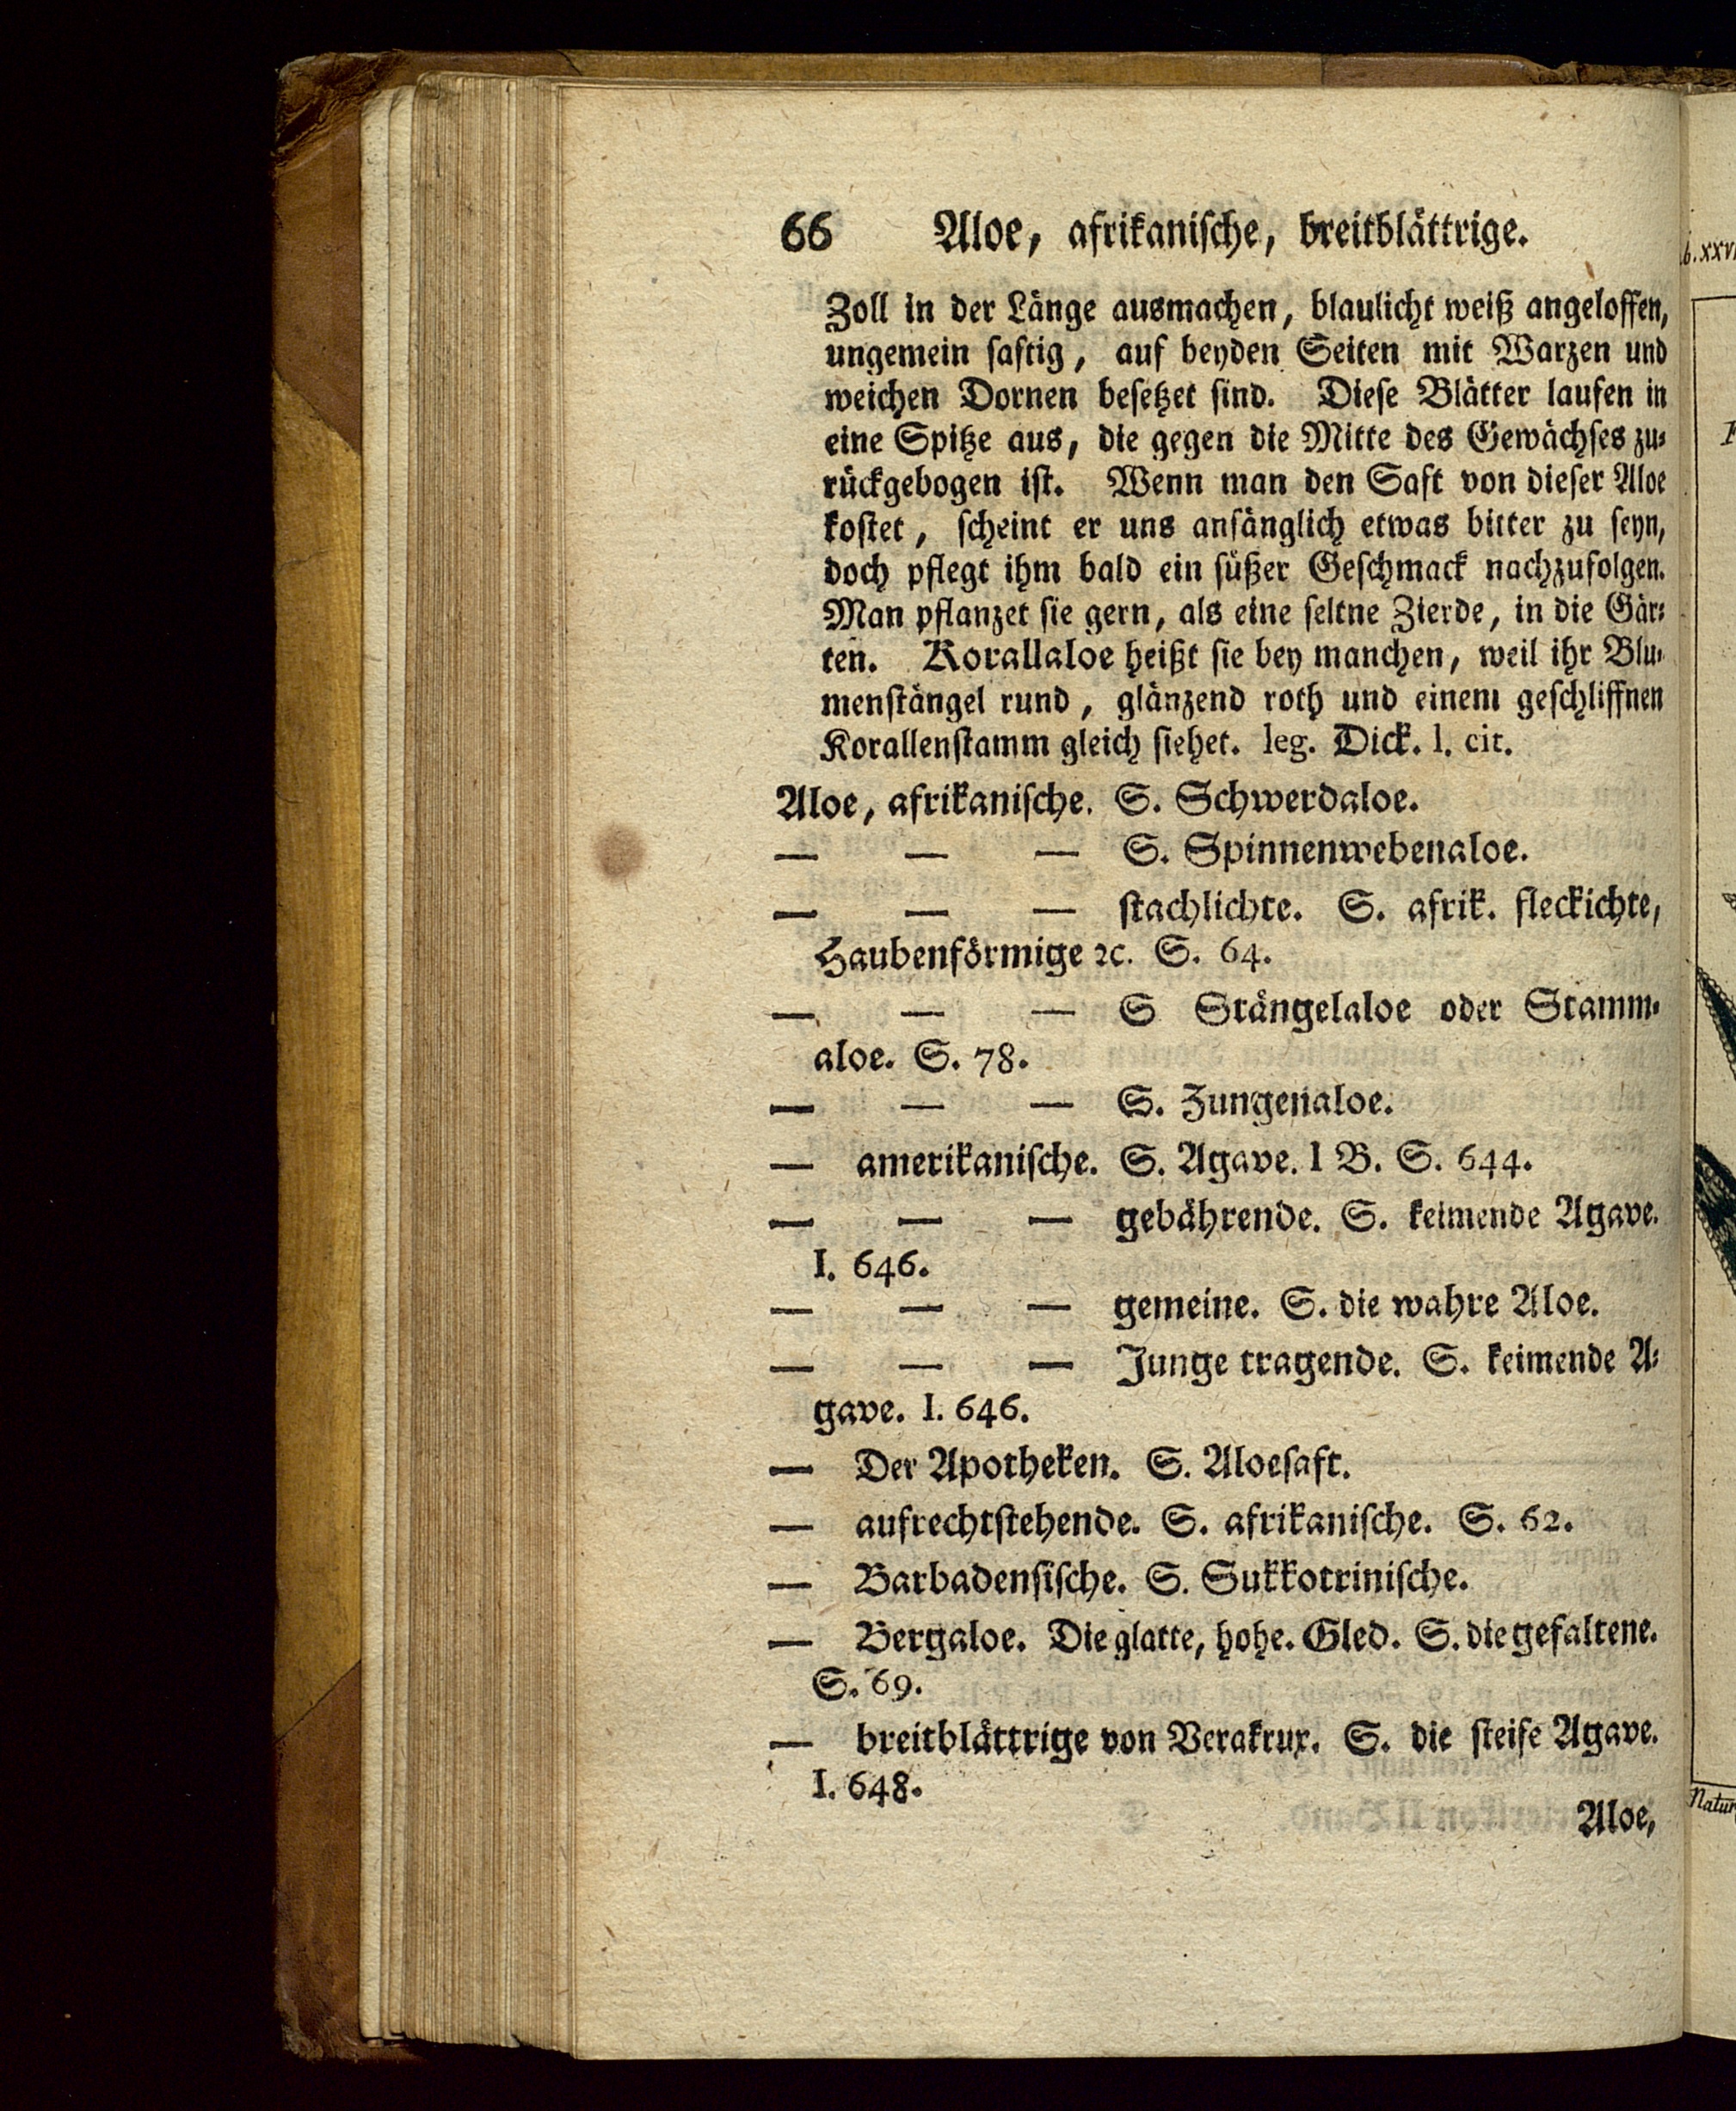 66 Aloe, afrikanische, breitblättrige.
Zoll in der Länge ausmachen, blaulicht weiß angeloffen,
ungemein saftig, auf beyden Seiten mit Warzen und
weichen Dornen besetzet sind. Diese Blätter laufen in
eine Spitze aus, die gegen die Mitte des Gewächses zu-
rückgebogen ist. Wenn man den Saft von dieser Aloe
kostet, scheint er uns anfänglich etwas bitter zu seyn,
doch pflegt ihm bald ein süßer Geschmack nachzufolgen.
Man pflanzet sie gern, als eine seltne Zierde, in die Gär-
ten. Korallaloe heißt sie bey manchen, weil ihr Blu-
menstängel rund, glänzend roth und einem geschliffnen
Korallenstamm gleich siehet. leg. Dick. l. cit.
Aloe, afrikanische. S. Schwerdaloe.
— — — S. Spinnenwebenaloe.
— — — stachlichte. S. afrik. fleckichte,
Haubenförmige ꝛc. S. 64.
— — — S Stängelaloe oder Stamm-
aloe. S. 78.
— — — S. Zungenaloe.
— amerikanische. S. Agave. I B. S. 644.
— — — gebährende. S. keimende Agave.
I. 646.
— — — gemeine. S. die wahre Aloe.
— — — Junge tragende. S. keimende A-
gave. I. 646.
— Der Apotheken. S. Aloesaft.
— aufrechtstehende. S. afrikanische. S. 62.
— Barbadensische. S. Sukkotrinische.
— Bergaloe. Die glatte, hohe. Gled. S. die gefaltene.
S. 69.
— breitblättrige von Verakrux. S. die steife Agave.
I. 648.
Aloe,